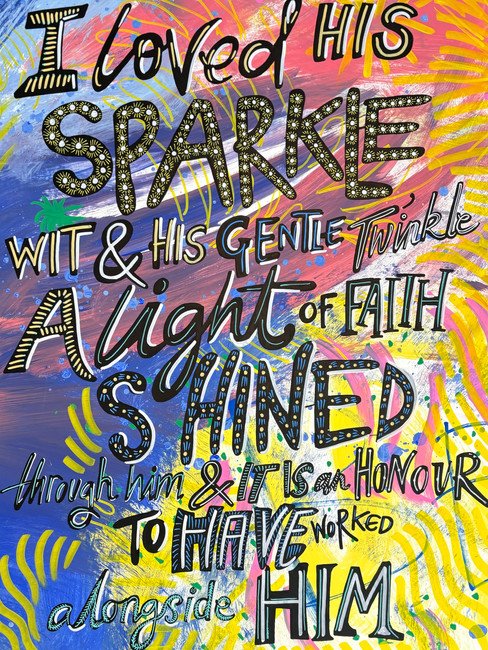 I loved HIS
SPARKLE
WIT & HIS GENTLE Twinkle
A light of FAITH
SHINED
through him & IT IS an HONOUR
TO HAVE WORKED
alongside HIM